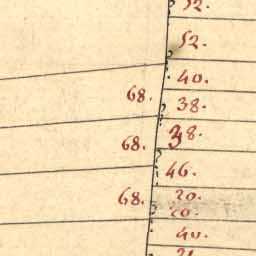 52.
52.
40.
68.
38.
38.
68.
46.
68.
20.
20.
40.